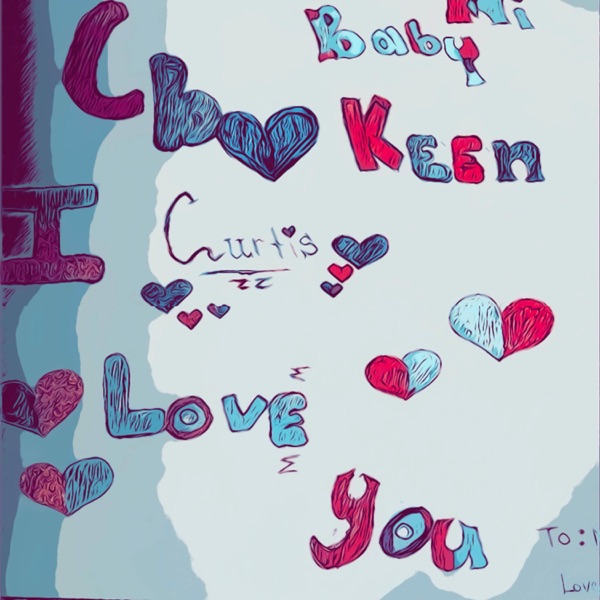 Baby
Cb
Keen
Curtis
I
Love
You
To:
Love